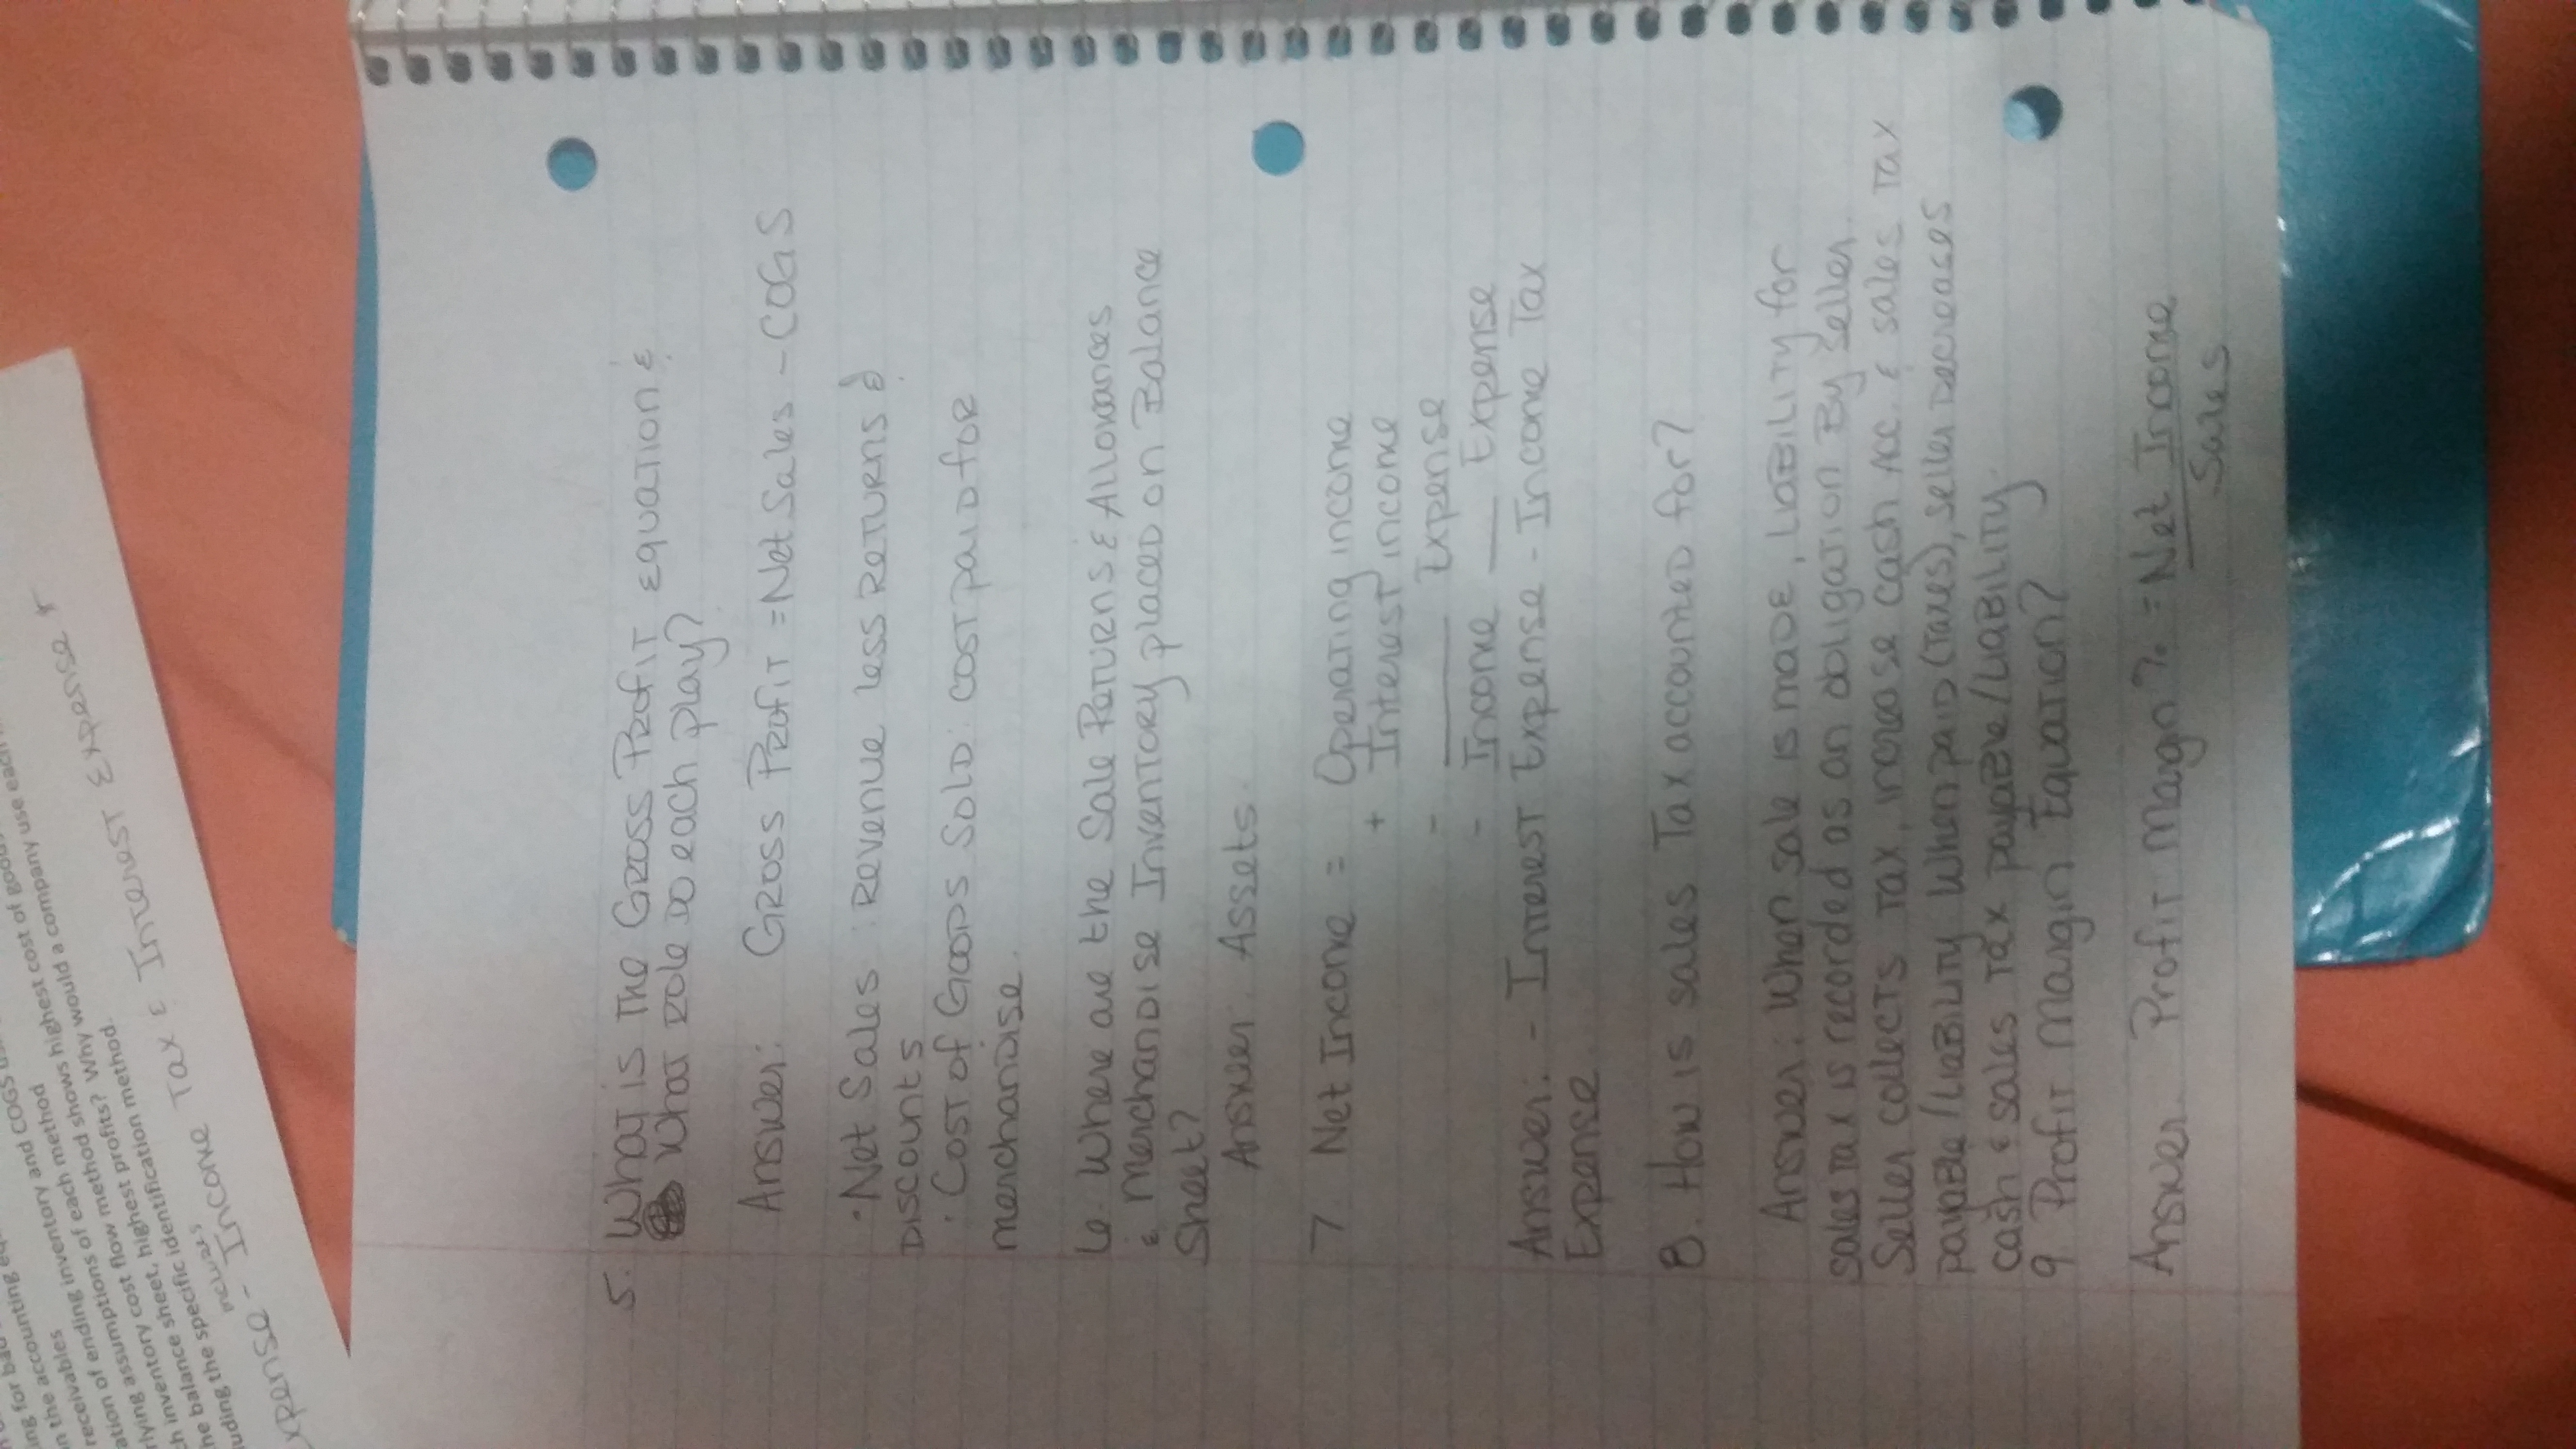 5. What is The Gross Profit equation &
What role do each play?
Answer: Gross Profit = Net Sales - COGS
· Net Sales : revenue less returns &
discounts
· Cost of Goods Sold: cost paid for
merchandise.
6. Where are the Sale Returns & Allowances
& Merchandise Inventory placed on Balance
Sheet?
Answer: Assets.
7. Net Income = Operating income
+ Interest income
- ____ Expense
- Income ____ Expense
Answer: - Interest Expense - Income Tax
Expense.
8. How is sales Tax accounted for?
Answer: When sale is made, liability for
sales tax is recorded as an obligation By seller.
Seller collects Tax, increase cash Acc. & sales Tax
payable/liability when paid (taxes), seller Decreases
cash & sales Tax payable/liability.
9 Profit Margin Equation?
Answer: Profit Margin % = Net Income
Sales
ing for bad
in the accounting
receivables
ation of endings inventory and COGS
assumptions of each method
rlying assumption cost flow methods shows highest cost of goods
inventory cost highest profits? Why would a company use each
ch balance sheet, highest
he specific identification method.
uding the
xpense - Income Tax & Interest Expense *